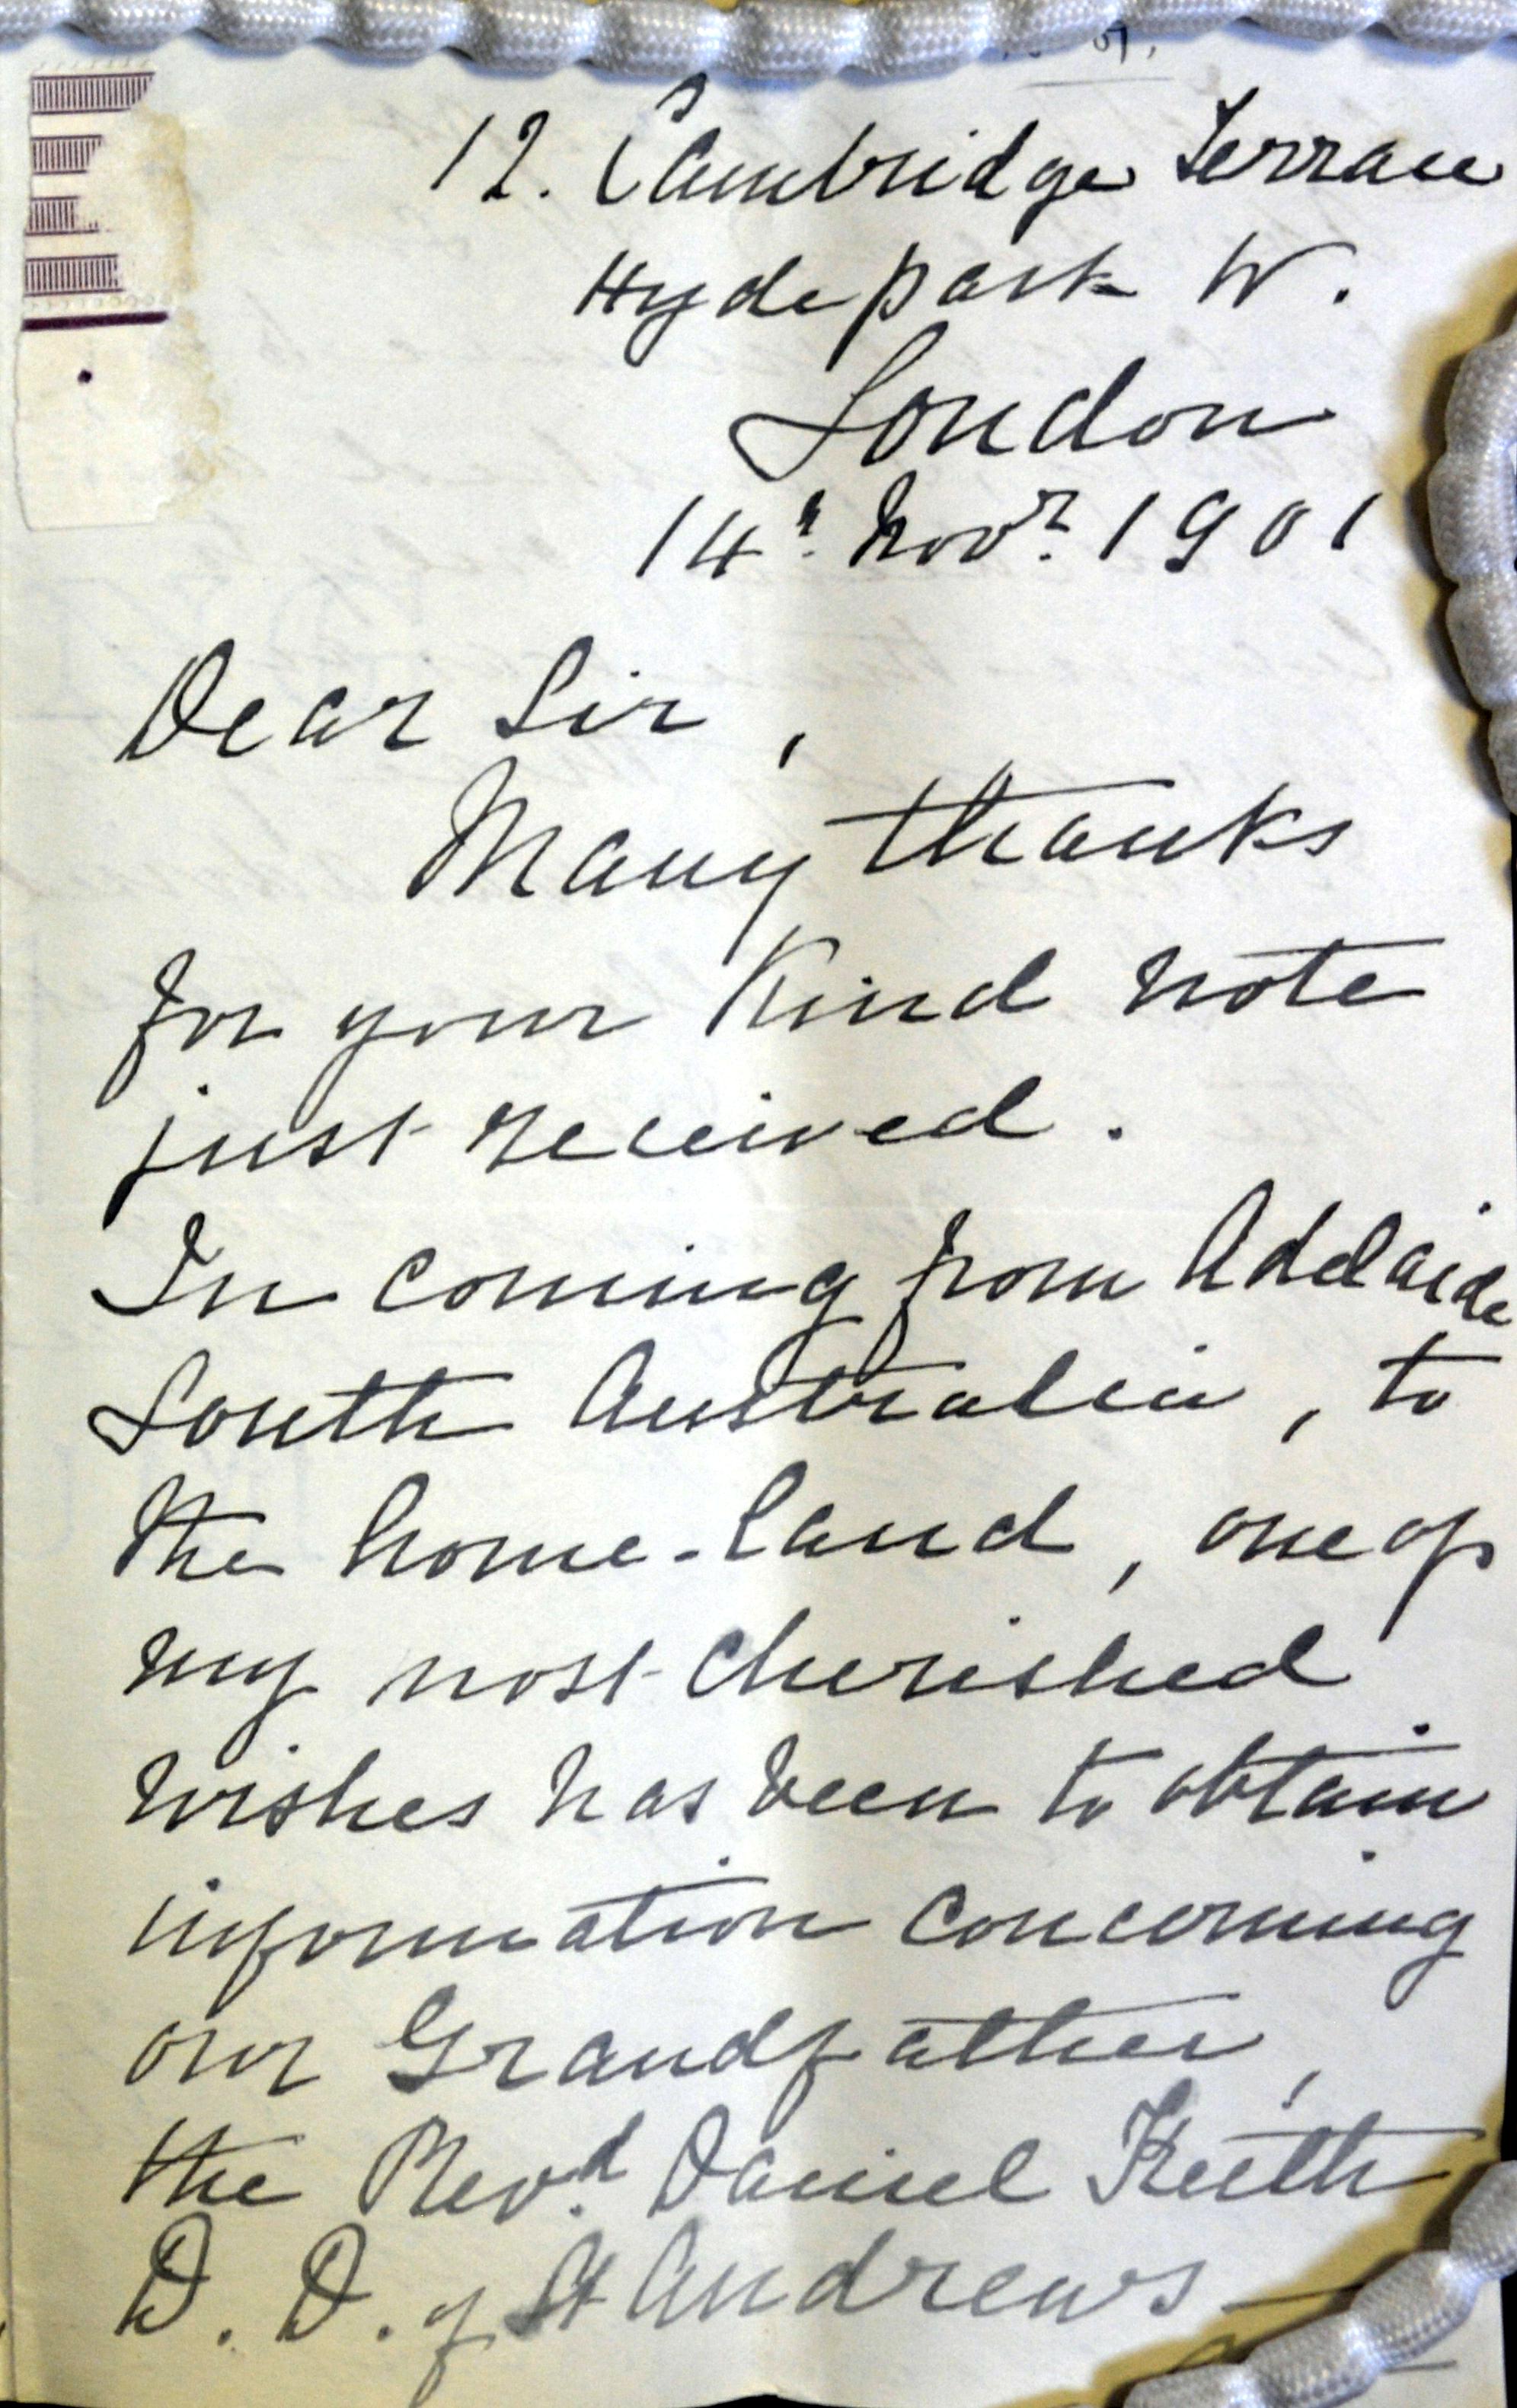 12. Cambridge Terrace
Hyde park W.
London
14th Novr. 1901
Dear Sir,
Many thanks
for your kind note
just received.
In coming from Adelaide
South Australia, to
the home-land, one of
my most cherished
wishes has been to obtain
information concerning
our Grandfather,
the Revd. Daniel Keith
D. D. of St Andrews